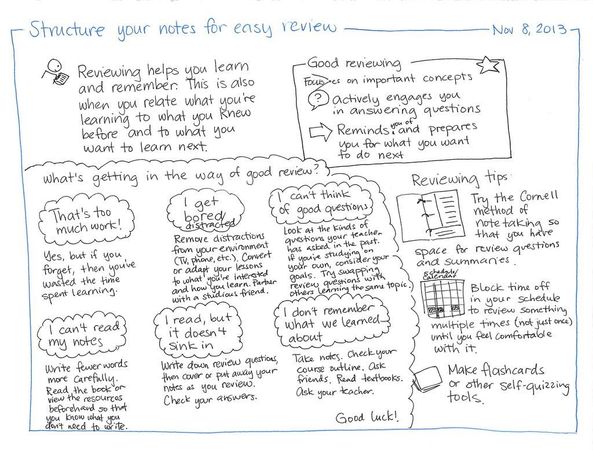 Structure your notes for easy review
Nov 8, 2013
Reviewing helps you learn
and remember. This is also
when you relate what you're
learning to what you knew
before and to what you
want to learn next.
Good reviewing
Focuses on important concepts
? Actively engages you
in answering questions
Reminds you of and prepares
you for what you want
to do next
What's getting in the way of good review?
That's too
much work!
Yes, but if you
forget, then you've
wasted the time
spent learning.
I get
bored/
distracted
Remove distractions
from your environment
(TV, phone, etc.). Convert
or adapt your lessons
to what you're interested
and how you learn. Partner
with a studious friend.
I can't think
of good questions
Look at the kinds of
questions your teacher
has asked in the past.
If you're studying on
your own, consider your
goals. Try swapping
review questions with
others learning the same topic.
I can't read
my notes
Write fewer words
more carefully.
Read the book or
view the resources
beforehand so that
you know what you
don't need to write.
I read, but
it doesn't
sink in
Write down review questions,
then cover or put away your
notes as you review.
Check your answers.
I don't remember
what we learned
about
Take notes. Check your
course outline. Ask
friends. Read textbooks.
Ask your teacher.
Good luck!
Reviewing tips
Try the Cornell
method of
note taking so
that you have
space for review questions
and summaries.
Schedule/
calendar
Block time off
in your schedule
to review something
multiple times (not just once)
until you feel comfortable
with it.
Make flashcards
or other self-quizzing
tools.